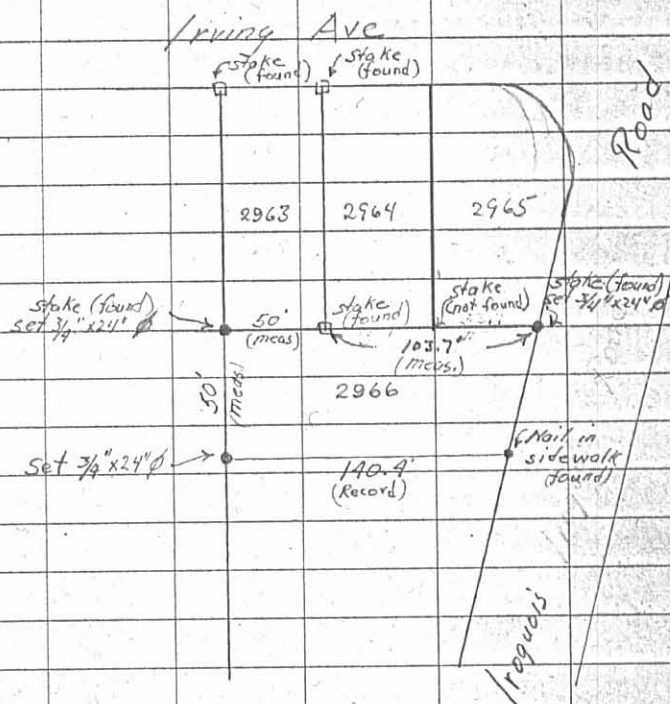 Irving Ave
stake
(found)
stake
(found)
Road
2963
2964
2965
stake (found)
set 3/4" x 24" ϕ
50'
(meas)
stake
(found)
stake
(not found)
stake (found)
set 3/4" x 24" ϕ
103.7'
(meas.)
50'
(meas)
2966
Set 3/4" x 24" ϕ
140.4'
(Record)
Nail in
sidewalk
(found)
Iroquois